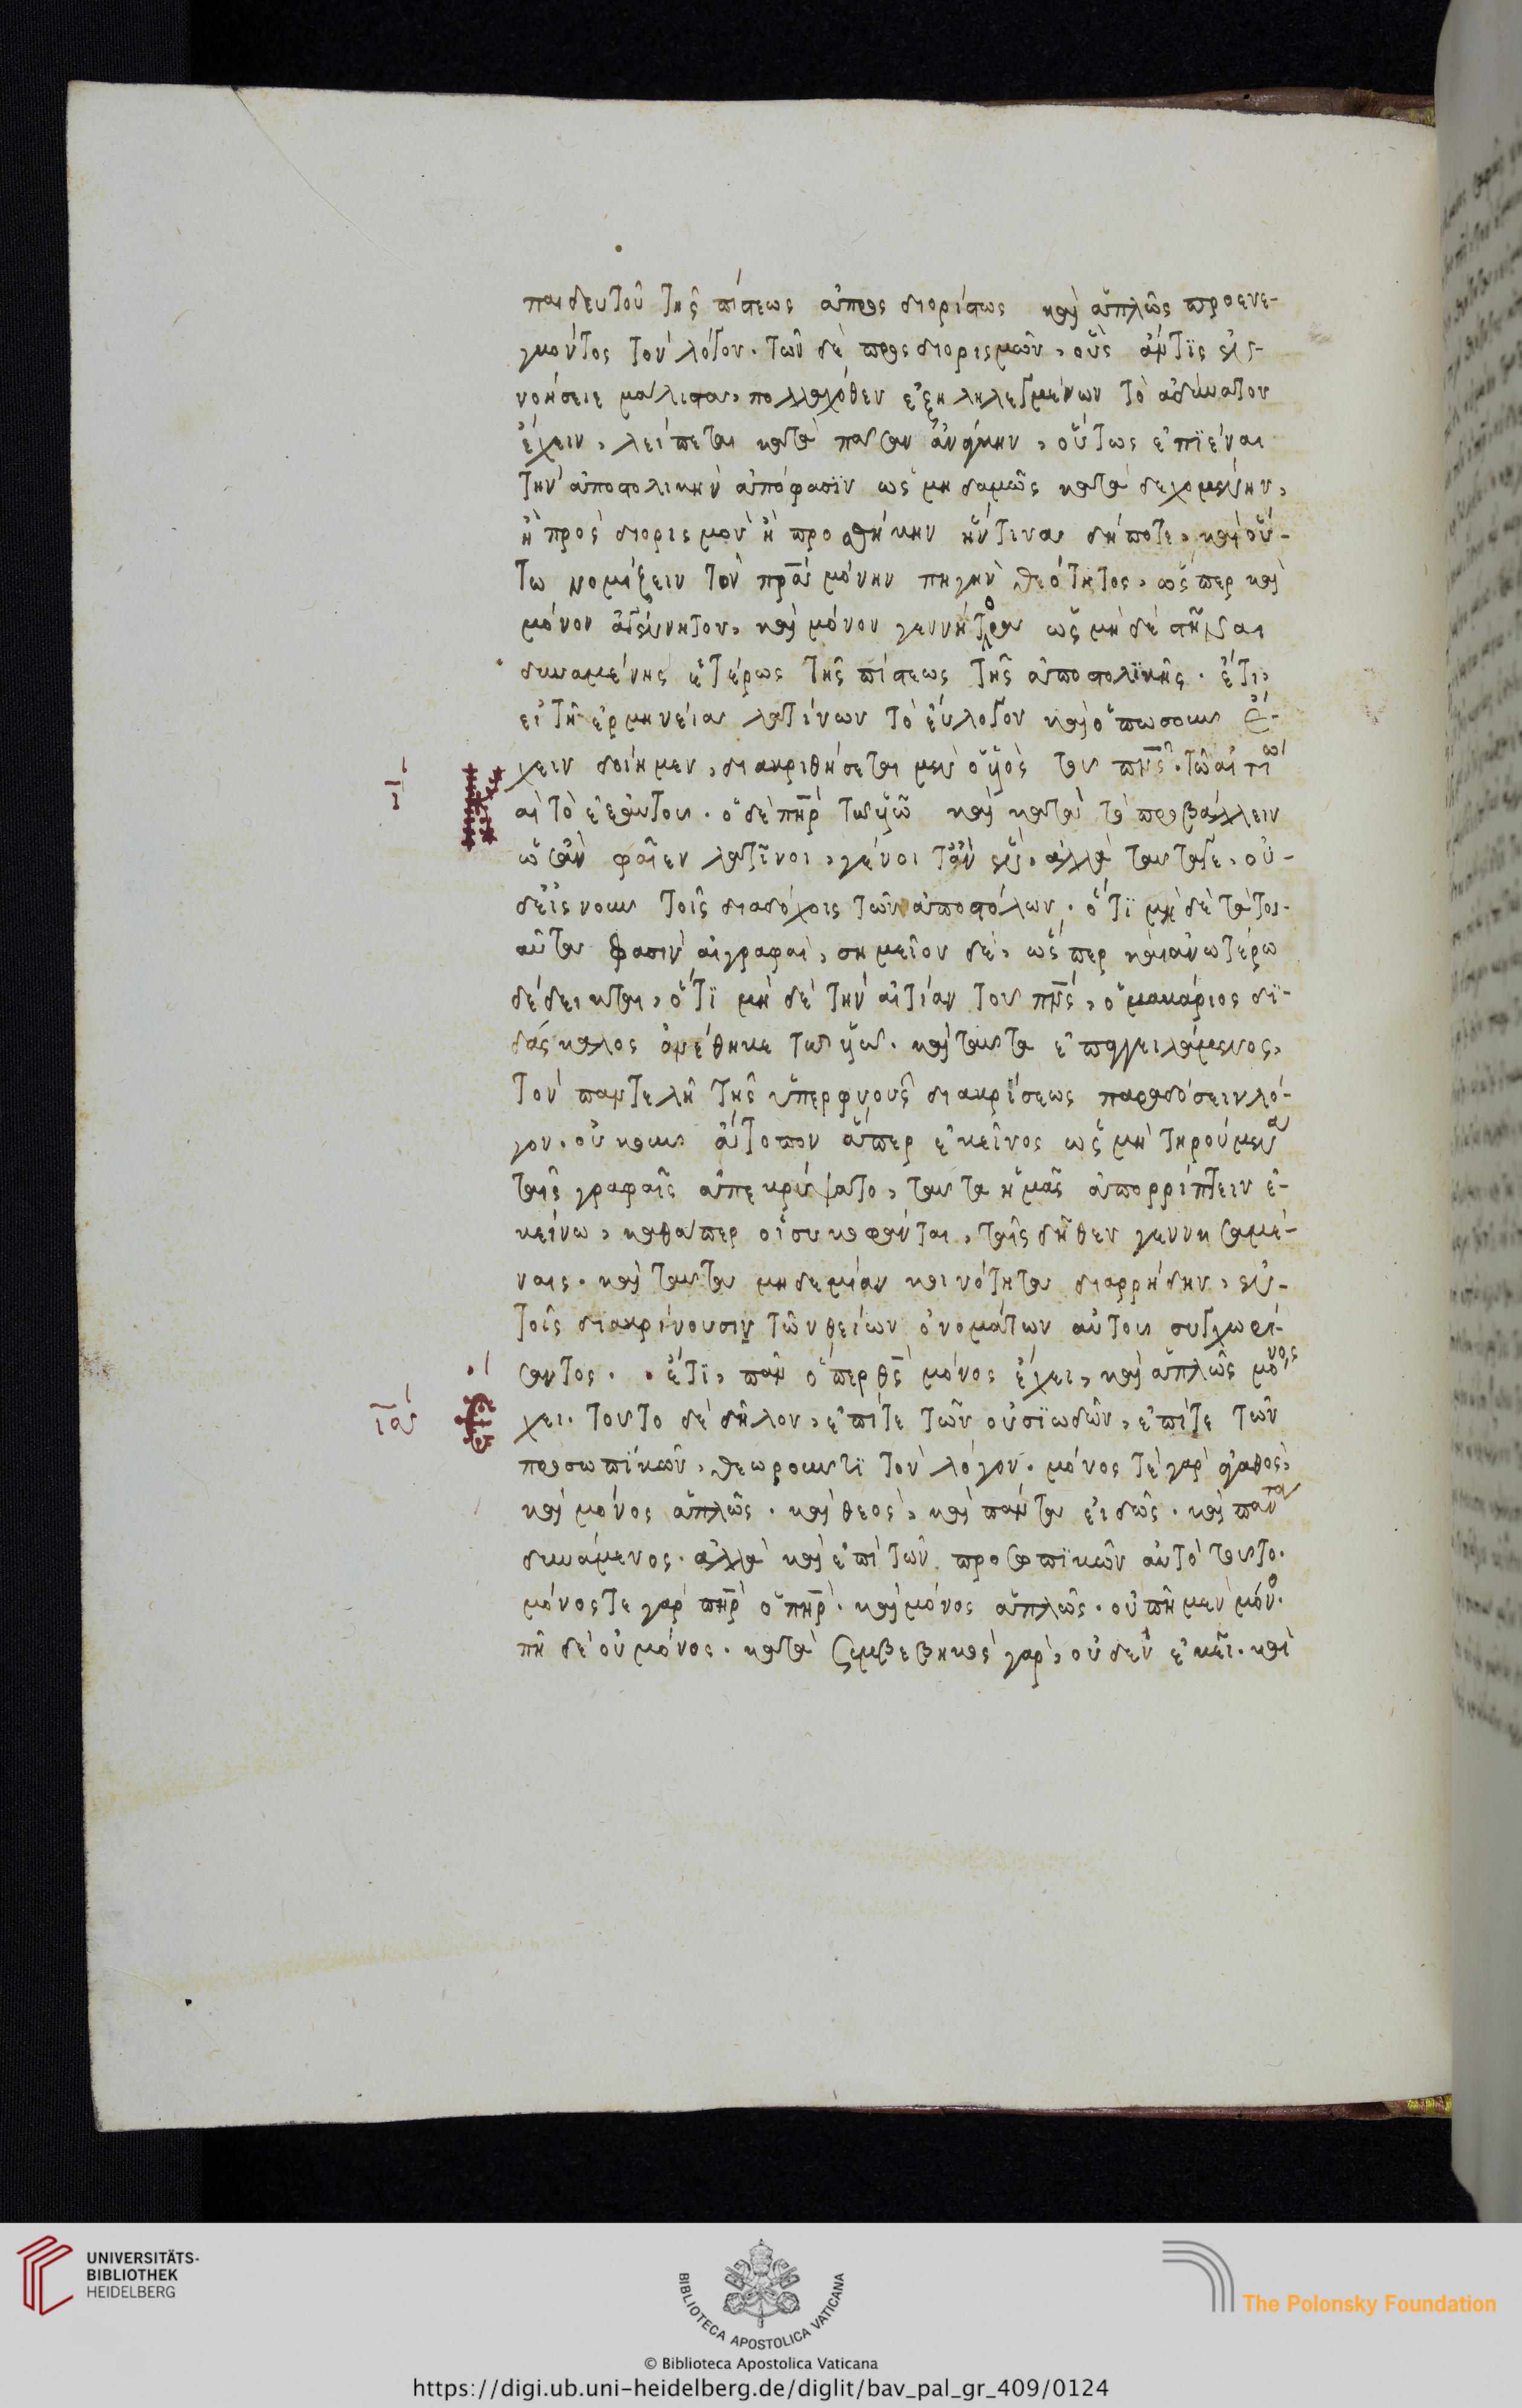 παιδευτοῦ τῆς πίστεως ἀπροσδιορίστως καὶ ἁπλῶς προενε-
γκόντος τὸν λόγον. τῶν δὲ προσδιορισμῶν, οὓς ἄν τις εἰς-
νοήσειε μάλιστα, πολλαχόθεν ἐξηληλεγμένων τὸ ἀδύνατον
ἔχειν, λείπεται κατὰ πᾶσαν ἀνάγκην, οὕτως ἐπϊέναι
τὴν ἀποστολικὴν ἀπόφασϊν ὡς μηδαμῶς καταδεχομένην,
ἢ προσδιορισμὸν ἢ προσθήκην ἥντινα δήποτε, καὶ οὕ-
τω νομίζειν τὸν πρ̅α μόνην πηγὴν θεότητος, ὥσπερ καὶ
μόνον ἀγέννητον, καὶ μόνον γεννήτορα ὡς μὴ δὲ στῆναι
δυναμένης ἑτέρως τῆς πίστεως τῆς ἀποστολϊκῆς. ἔτι,
εἰ τῇ ἑρμηνεία λατίνων τὸ εὔλογον καὶ ὁπωσοῦν ἔ-
ι̅ χειν δοίημεν, διακριθήσεται μὲν ὁ υἱὸς τοῦ πν̅ς. τῶ αἰτίω
αἰτὸ ἐξ αὐτοῦ. ὁ δὲ πη̅ρ τοῦ υἱοῦ καὶ κατὰ τὸ προβάλλειν
ὡς ἂν φαῖεν λατῖνοι, γένοιτ' ἂν εὖ. ἀλλὰ ταῦτά γε, οὐ-
δεὶς νοῦς τοῖς διαδόχοις τῶν ἀποστόλων. ὅτϊ μὴ δὲ τὰ τοι-
αῦτα φασὶν αἱ γραφαί, σημεῖον δὲ, ὥσπερ καὶ ἀνωτέρω
δέδεικται, ὅτϊ μὴ δὲ τὴν αἰτίαν τοῦ πν̅ς, ὁ μακάριος δϊ-
δάσκαλος ἀνέθηκε τῶ υἱῶ. καὶ ταῦτα ἐπαγγειλάμενος,
τὸν παντελῆ τῆς ὑπερφυοῦς διακρίσεως παραδόσειν λό-
γον. οὐκοῦν ἄτοπον ἅπερ ἐκεῖνος ὡς μὴ τηρούμενα
ταῖς γραφαῖς ἀπεκρύψατο, ταῦτα ἡμᾶς ἀπορρίπτειν ἐ-
κείνω, καθάπερ οἱ συκοφάνται, ταῖς δῆθεν γεννησαμέ-
ναις. καὶ ταῦτα μηδεμίαν καινότητα διαρρήδην, ἐν
τοῖς διακρίνουσιν τῶν θείων ὀνομάτων αὐτοῦ συγχωρή-
σαντος. ἔτϊ, πᾶν ὅπερ θ̅ς μόνος ἔχει, καὶ ἁπλῶς μόνος
ι̅α ἔχει. τοῦτο δὲ δῆλον, ἐπί τε τῶν οὐσϊωδῶν, ἐπί τε τῶν
προσωπϊκῶν, θεωροῦντϊ τὸν λόγον. μόνος τὲ γὰρ ἀγαθὸς,
καὶ μόνος ἁπλῶς. καὶ θεὸς, καὶ πάντα εἰδὼς. καὶ πάντα
δυνάμενος. ἀλλὰ καὶ ἐπὶ τῶν προσωπϊκῶν αὐτὸ τοῦτο.
μόνος τε γὰρ πη̅ρ ὁ πη̅ρ. καὶ μόνος ἁπλῶς. οὐ πῆ μὲν μόνος.
πῆ δὲ οὐ μόνος. κατὰ συμβεβηκὸς γὰρ, οὐδὲν ἐκεῖ. καὶ
UNIVERSITÄTS-
BIBLIOTHEK
HEIDELBERG
BIBLIOTECA APOSTOLICA VATICANA
The Polonsky Foundation
© Biblioteca Apostolica Vaticana
https://digi.ub.uni-heidelberg.de/diglit/bav_pal_gr_409/0124